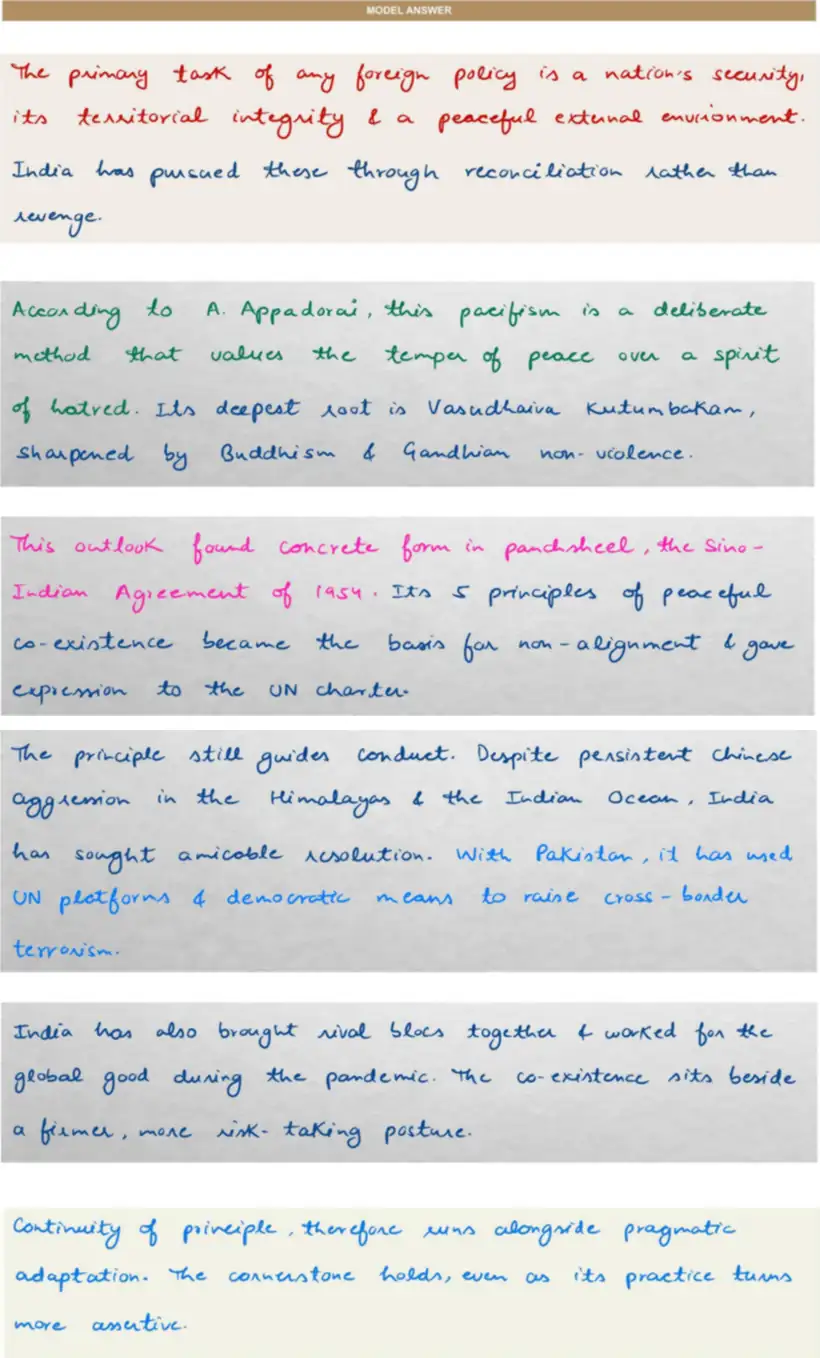 MODEL ANSWER
The primary task of any foreign policy is a nation's security,
its territorial integrity & a peaceful external environment.
India has pursued these through reconciliation rather than
revenge.
According to A. Appadorai, this pacifism is a deliberate
method that values the temper of peace over a spirit
of hatred. Its deepest root is Vasudhaiva Kutumbakam,
sharpened by Buddhism & Gandhian non-violence.
This outlook found concrete form in panchsheel, the Sino-
Indian Agreement of 1954. Its 5 principles of peaceful
co-existence became the basis for non-alignment & gave
expression to the UN charter.
The principle still guides conduct. Despite persistent Chinese
aggression in the Himalayas & the Indian Ocean, India
has sought amicable resolution. With Pakistan, it has used
UN platforms & democratic means to raise cross-border
terrorism.
India has also brought rival blocs together & worked for the
global good during the pandemic. The co-existence sits beside
a firmer, more risk-taking posture.
Continuity of principle, therefore runs alongside pragmatic
adaptation. The cornerstone holds, even as its practice turns
more assertive.